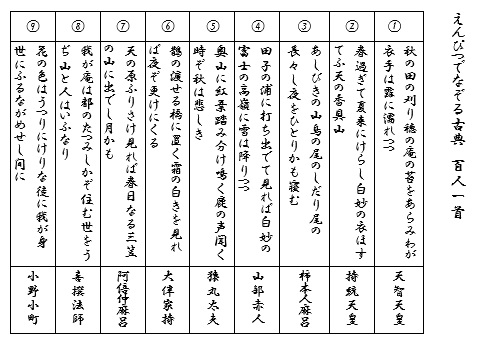 えんぴつでなぞる古典 百人一首
①
秋の田の刈り穂の庵の苔をあらみわが
衣手は露に濡れつつ
天智天皇
②
春過ぎて夏来にけらし白妙の衣ほす
てふ天の香具山
持統天皇
③
あしびきの山鳥の尾のしだり尾の
長々し夜をひとりかも寝む
柿本人麻呂
④
田子の浦に打ち出でて見れば白妙の
富士の高嶺に雪は降りつつ
山部赤人
⑤
奥山に紅葉踏み分け鳴く鹿の声聞く
時ぞ秋は悲しき
猿丸太夫
⑥
鵲の渡せる橋に置く霜の白きを見れ
ば夜ぞ更けにくる
大伴家持
⑦
天の原ふりさけ見れば春日なる三笠
の山に出でし月かも
阿倍仲麻呂
⑧
我が庵は都のたつみしかぞ住む世をう
ぢ山と人はいふなり
喜撰法師
⑨
花の色はうつりにけりな徒に我が身
世にふるながめせし間に
小野小町